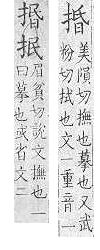 捪
美隕切撫也摹也又武
粉切拭也文一重音一
捪抿
眉貧切說文撫也一
曰摹也或省文二